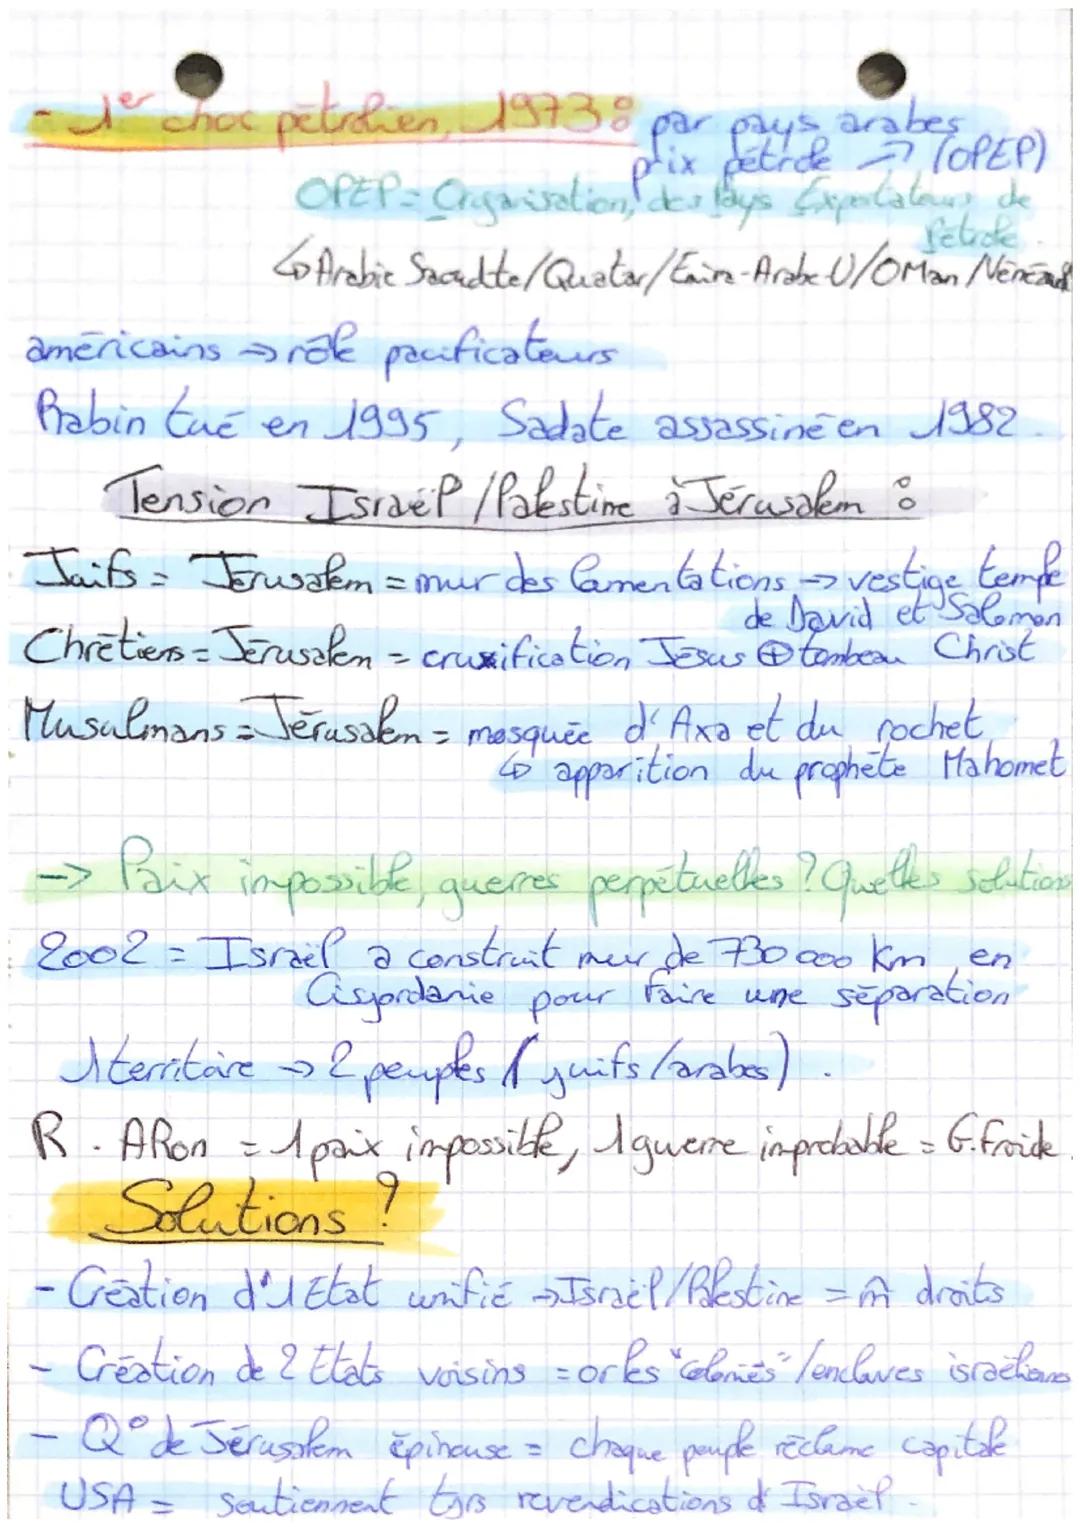 - 1er choc pétrolien, 1973 : par pays arabes
prix pétrole ↗ (OPEP)
OPEP = Organisation, des Pays Exportateurs de
Pétrole.
↳ Arabie Saoudite/Quatar/Emira-Arabe U/OMan/
américains → rôle pacificateurs
Rabin tué en 1995, Sadate assassiné en 1982.
Tension Israël / Palestine à Jérusalem :
Juifs = Jérusalem = mur des lamentations → vestige temple
de David et Salomon
Chrétiens = Jérusalem = crucification Jésus ⊕ tombeau Christ
Musulmans = Jérusalem = mosquée d'Axa et du rochet
↳ apparition du prophète Mahomet
-> Paix impossible, guerres perpétuelles ? Quelles solutions
2002 = Israël a construit mur de 730 000 Km en
Cisjordanie pour faire une séparation
1 territoire → 2 peuples (juifs/arabes).
R. ARon = 1 paix impossible, 1 guerre improbable = G. Froide.
Solutions ?
- Création d'1 Etat unifié → Israël/Palestine = m̂ droits
- Création de 2 Etats voisins = or les "colonies"/enclaves israéliens
- Q° de Jérusalem épineuse = chaque peuple réclame capitale
USA = soutiennent tjrs revendications d'Israël.